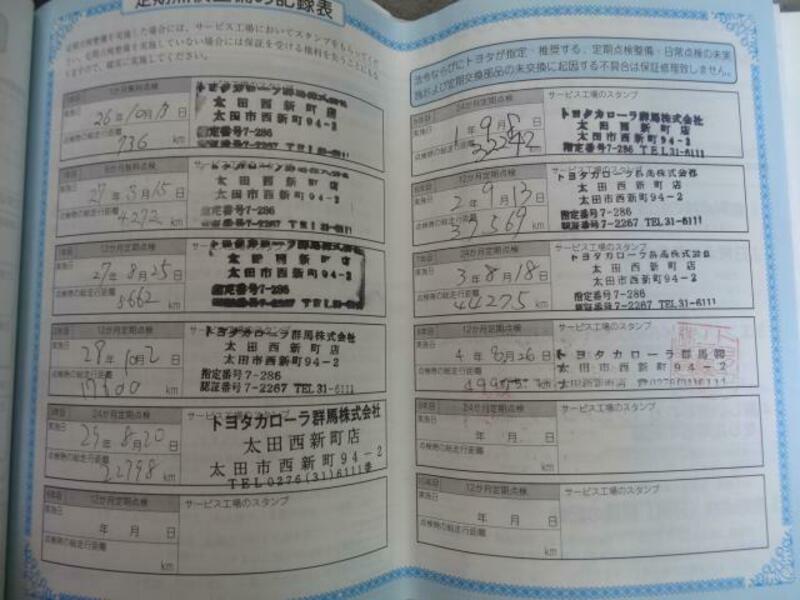 定期点検整備の記録表
定期点検整備を実施した場合には、サービス工場においてスタンプをもらってくだ
さい。定期点検整備を実施していない場合には保証を受ける権利を失うことにも
なりますので、確実に実施してください。
1か月無料点検
実施日
26年10月
点検時の総走行距離
736 km
太田西新町店
太田市西新町94-2
指定番号7-286
認証番号7-2267 TEL31-6111
6か月無料点検
実施日
27年3月15日
点検時の総走行距離
4272 km
太田西新町店
太田市西新町94-2
指定番号7-286
認証番号7-2267 TEL31-6111
12か月定期点検
実施日
27年8月25日
点検時の総走行距離
8662 km
太田西新町店
太田市西新町94-2
指定番号7-286
認証番号7-2267 TEL31-6111
12か月定期点検
サービス工場のスタンプ
実施日
28年10月2日
点検時の総走行距離
km
トヨタカローラ群馬株式会社
太田西新町店
太田市西新町94-2
指定番号7-286
認証番号7-2267 TEL31-6111
24か月定期点検
サービス工場のスタンプ
実施日
29年8月20日
点検時の総走行距離
22798 km
トヨタカローラ群馬株式会社
太田西新町店
太田市西新町94-2
TEL0276(31)6111番
12か月定期点検
サービス工場のスタンプ
実施日
年 月 日
点検時の総走行距離
km
法令ならびにトヨタが指定・推奨する、定期点検整備・日常点検の未実
施および定期交換部品の未交換に起因する不具合は保証修理致しません。
24か月定期点検
サービス工場のスタンプ
実施日
1年9月8日
点検時の総走行距離
トヨタカローラ群馬株式会社
太田西新町店
太田市西新町94-2
指定番号7-286 TEL31-6111
12か月定期点検
サービス工場のスタンプ
実施日
2年9月13日
点検時の総走行距離
37569 km
トヨタカローラ群馬株式会社
太田西新町店
太田市西新町94-2
指定番号7-286
認証番号7-2267 TEL31-6111
24か月定期点検
サービス工場のスタンプ
実施日
3年8月18日
点検時の総走行距離
44275 km
トヨタカローラ群馬株式会社
太田西新町店
太田市西新町94-2
指定番号7-286
認証番号7-2267 TEL31-6111
12か月定期点検
サービス工場のスタンプ
実施日
4年8月26日
点検時の総走行距離
km
トヨタカローラ群馬㈱
太田市西新町94-2
太田西新町店 ☎0276(31)6111
24か月定期点検
サービス工場のスタンプ
実施日
年 月 日
点検時の総走行距離
km
12か月定期点検
サービス工場のスタンプ
実施日
年 月 日
点検時の総走行距離
km